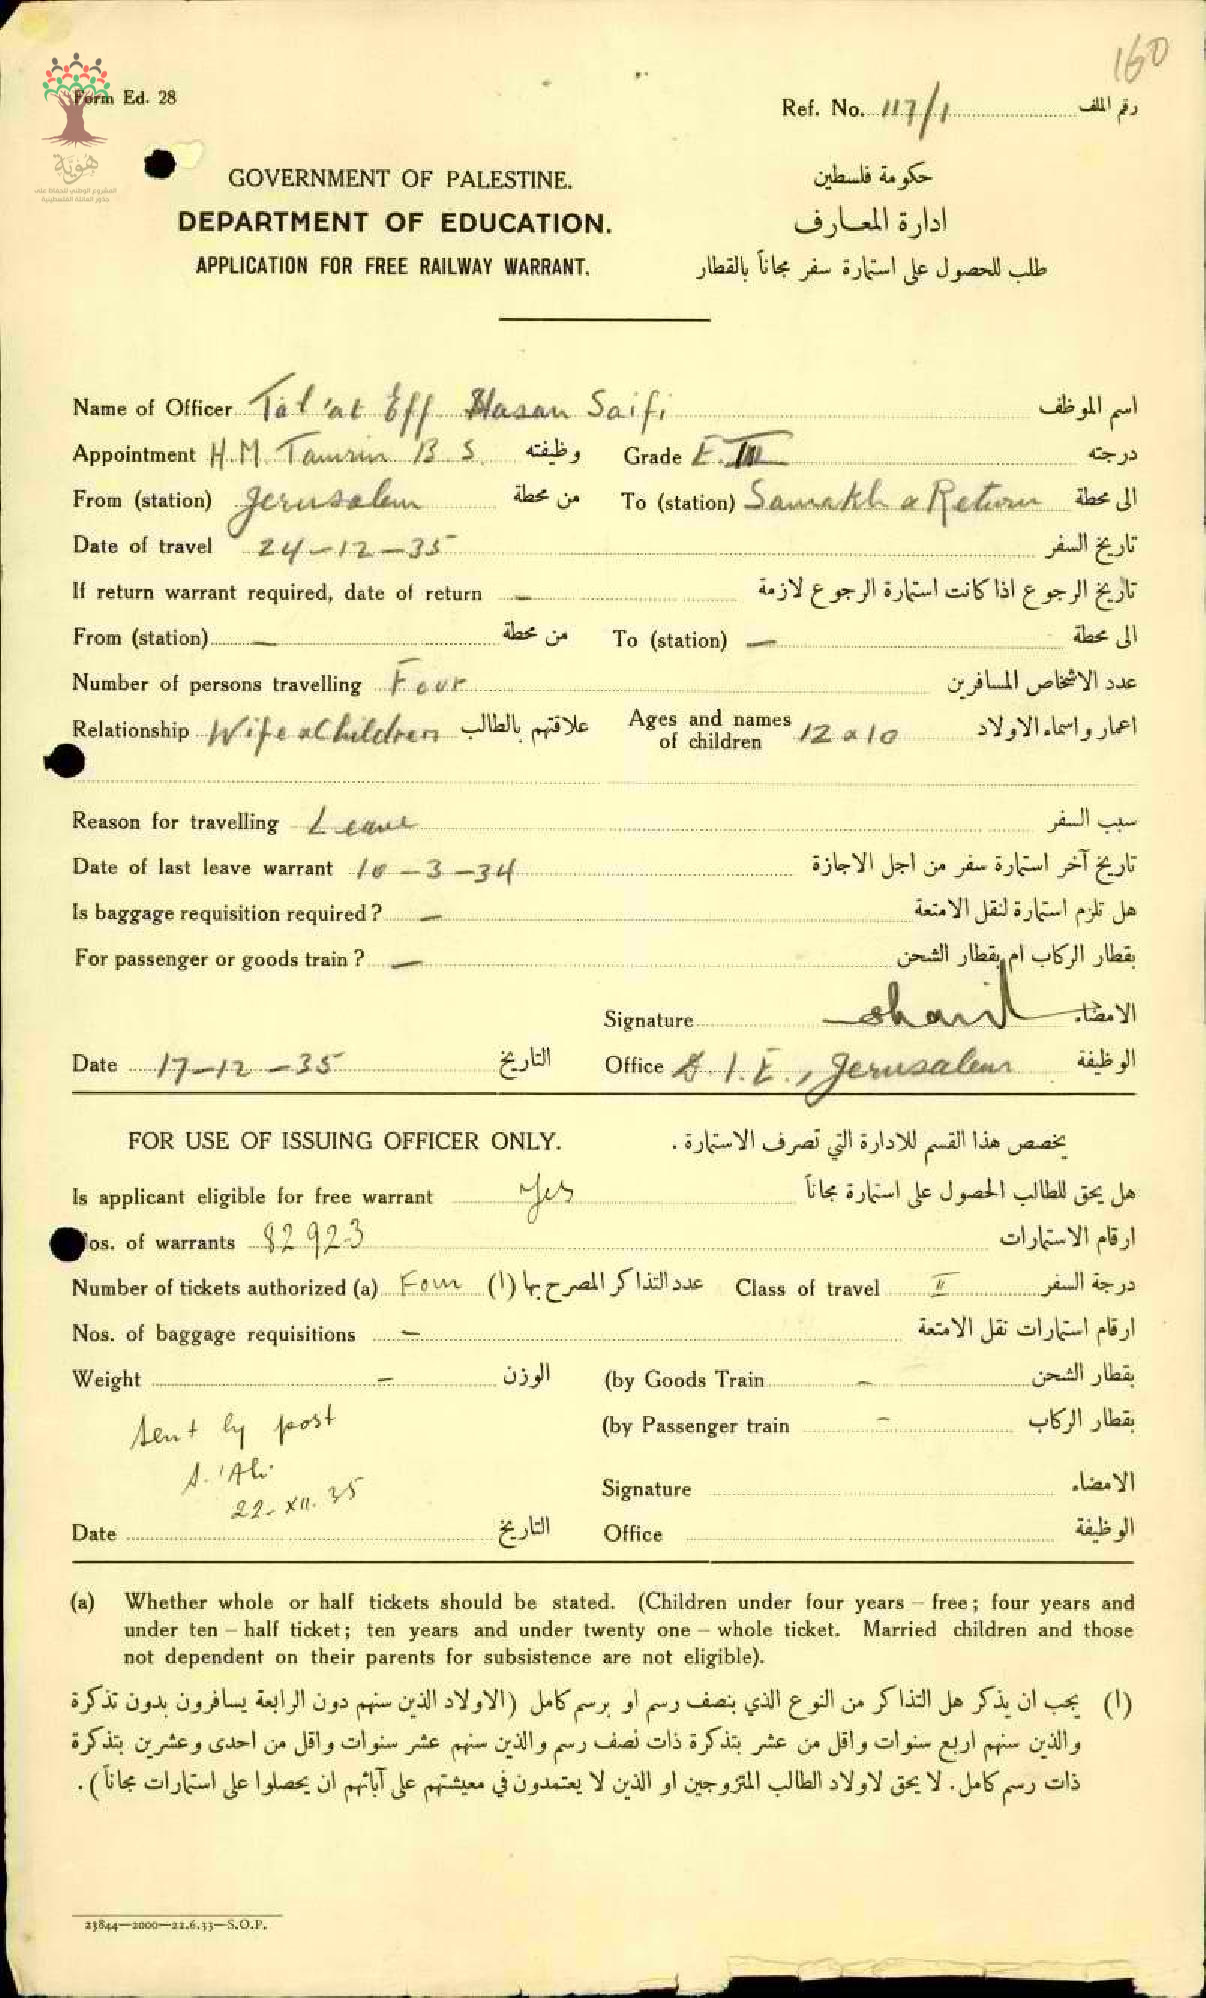 160
Form Ed. 28
Ref. No. 117/1 رقم الملف
هوية
المشروع الوطني للحفاظ على
جذور العائلة الفلسطينية
GOVERNMENT OF PALESTINE. حكومة فلسطين
DEPARTMENT OF EDUCATION. ادارة المعارف
APPLICATION FOR FREE RAILWAY WARRANT. طلب للحصول على استمارة سفر مجاناً بالقطار
Name of Officer Tal'at Eff Hasan Saifi اسم الموظف
Appointment H.M. Tamrin B S. وظيفته Grade E. III درجته
From (station) Jerusalem من محطة To (station) Samakh & Return الى محطة
Date of travel 24-12-35 تاريخ السفر
If return warrant required, date of return — تاريخ الرجوع اذا كانت استمارة الرجوع لازمة
From (station) — من محطة To (station) — الى محطة
Number of persons travelling Four عدد الاشخاص المسافرين
Relationship Wife & Children علاقتهم بالطالب Ages and names of children 12 & 10 اعمار واسماء الاولاد
Reason for travelling Leave سبب السفر
Date of last leave warrant 10-3-34 تاريخ آخر استمارة سفر من اجل الاجازة
Is baggage requisition required? — هل تلزم استمارة لنقل الامتعة
For passenger or goods train? — بقطار الركاب ام بقطار الشحن
Signature الامضاء
Date 17-12-35 التاريخ Office D.I.E., Jerusalem الوظيفة
FOR USE OF ISSUING OFFICER ONLY. يخصص هذا القسم للادارة التي تصرف الاستمارة .
Is applicant eligible for free warrant Yes هل يحق للطالب الحصول على استمارة مجاناً
Nos. of warrants 82923 ارقام الاستمارات
Number of tickets authorized (a) Four عدد التذاكر المصرح بها (ا) Class of travel II درجة السفر
Nos. of baggage requisitions — ارقام استمارات نقل الامتعة
Weight — الوزن (by Goods Train — بقطار الشحن
(by Passenger train — بقطار الركاب
Sent by post
A. 'Ali
22-XII.35
Signature الامضاء
Date التاريخ Office الوظيفة
(a) Whether whole or half tickets should be stated. (Children under four years – free; four years and
under ten – half ticket; ten years and under twenty one – whole ticket. Married children and those
not dependent on their parents for subsistence are not eligible).
(ا) يجب ان يذكر هل التذاكر من النوع الذي بنصف رسم او برسم كامل (الاولاد الذين سنهم دون الرابعة يسافرون بدون تذكرة
والذين سنهم اربع سنوات واقل من عشر بتذكرة ذات نصف رسم والذين سنهم عشر سنوات واقل من احدى وعشرين بتذكرة
ذات رسم كامل. لا يحق لاولاد الطالب المتزوجين او الذين لا يعتمدون في معيشتهم على آبائهم ان يحصلوا على استمارات مجاناً) .
23844—2000—22.6.33—S.O.P.